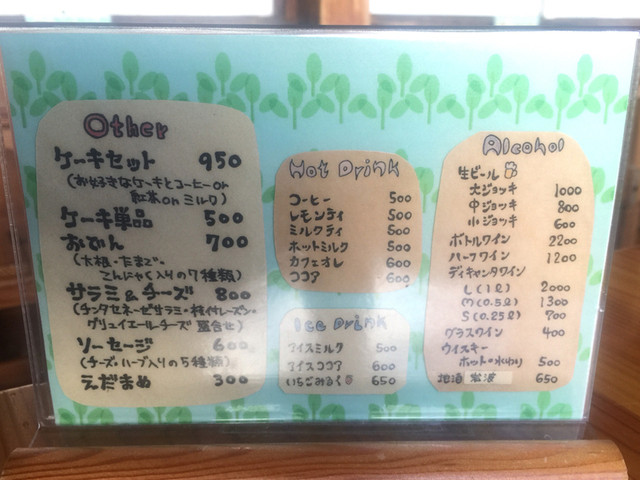 Other
ケーキセット 950
(お好きなケーキとコーヒーor
紅茶orミルク)
ケーキ単品 500
おでん 700
(大根・たまご・
こんにゃく入りの7種類)
サラミ&チーズ 800
(チンタセネーゼサラミ・枝付レーズン・
グリュイエールチーズ 盛合せ)
ソーセージ 600
(チーズ・ハーブ入りの5種類)
えだまめ 300
Hot Drink
コーヒー 500
レモンティ 500
ミルクティ 500
ホットミルク 500
カフェオレ 600
ココア 600
Ice Drink
アイスミルク 500
アイスココア 600
いちごみるく 650
Alcohol
生ビール
大ジョッキ 1000
中ジョッキ 800
小ジョッキ 600
ボトルワイン 2200
ハーフワイン 1200
ディキャンタワイン
L(1ℓ) 2000
M(0.5ℓ) 1300
S(0.25ℓ) 700
グラスワイン 400
ウイスキー
ホットor水(わり) 500
地酒 650